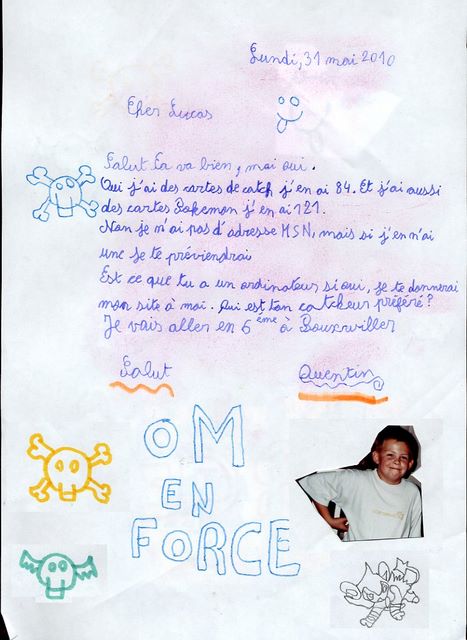 Lundi, 31 mai 2010
Cher Lucas
Salut Ça va bien, moi oui.
Oui j'ai des cartes de catch j'en ai 84. Et j'ai aussi
des cartes Pokemon j'en ai 121.
Non je n'ai pas d'adresse MSN, mais si j'en n'ai
une je te préviendrai
Est ce que tu a un ordinateur si oui, je te donnerai
mon site à moi. Qui est ton catcheur préféré?
Je vais aller en 6ème à Bouxwiller
Salut Quentin
OM
EN
FORCE